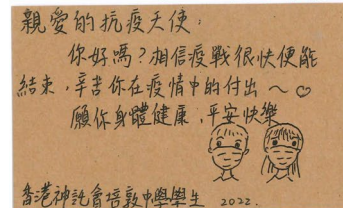 親愛的抗疫天使，
你好嗎？相信疫戰很快便能
結束，辛苦你在疫情中的付出～♡
願你身體健康，平安快樂
香港神託會培敦中學學生 2022.